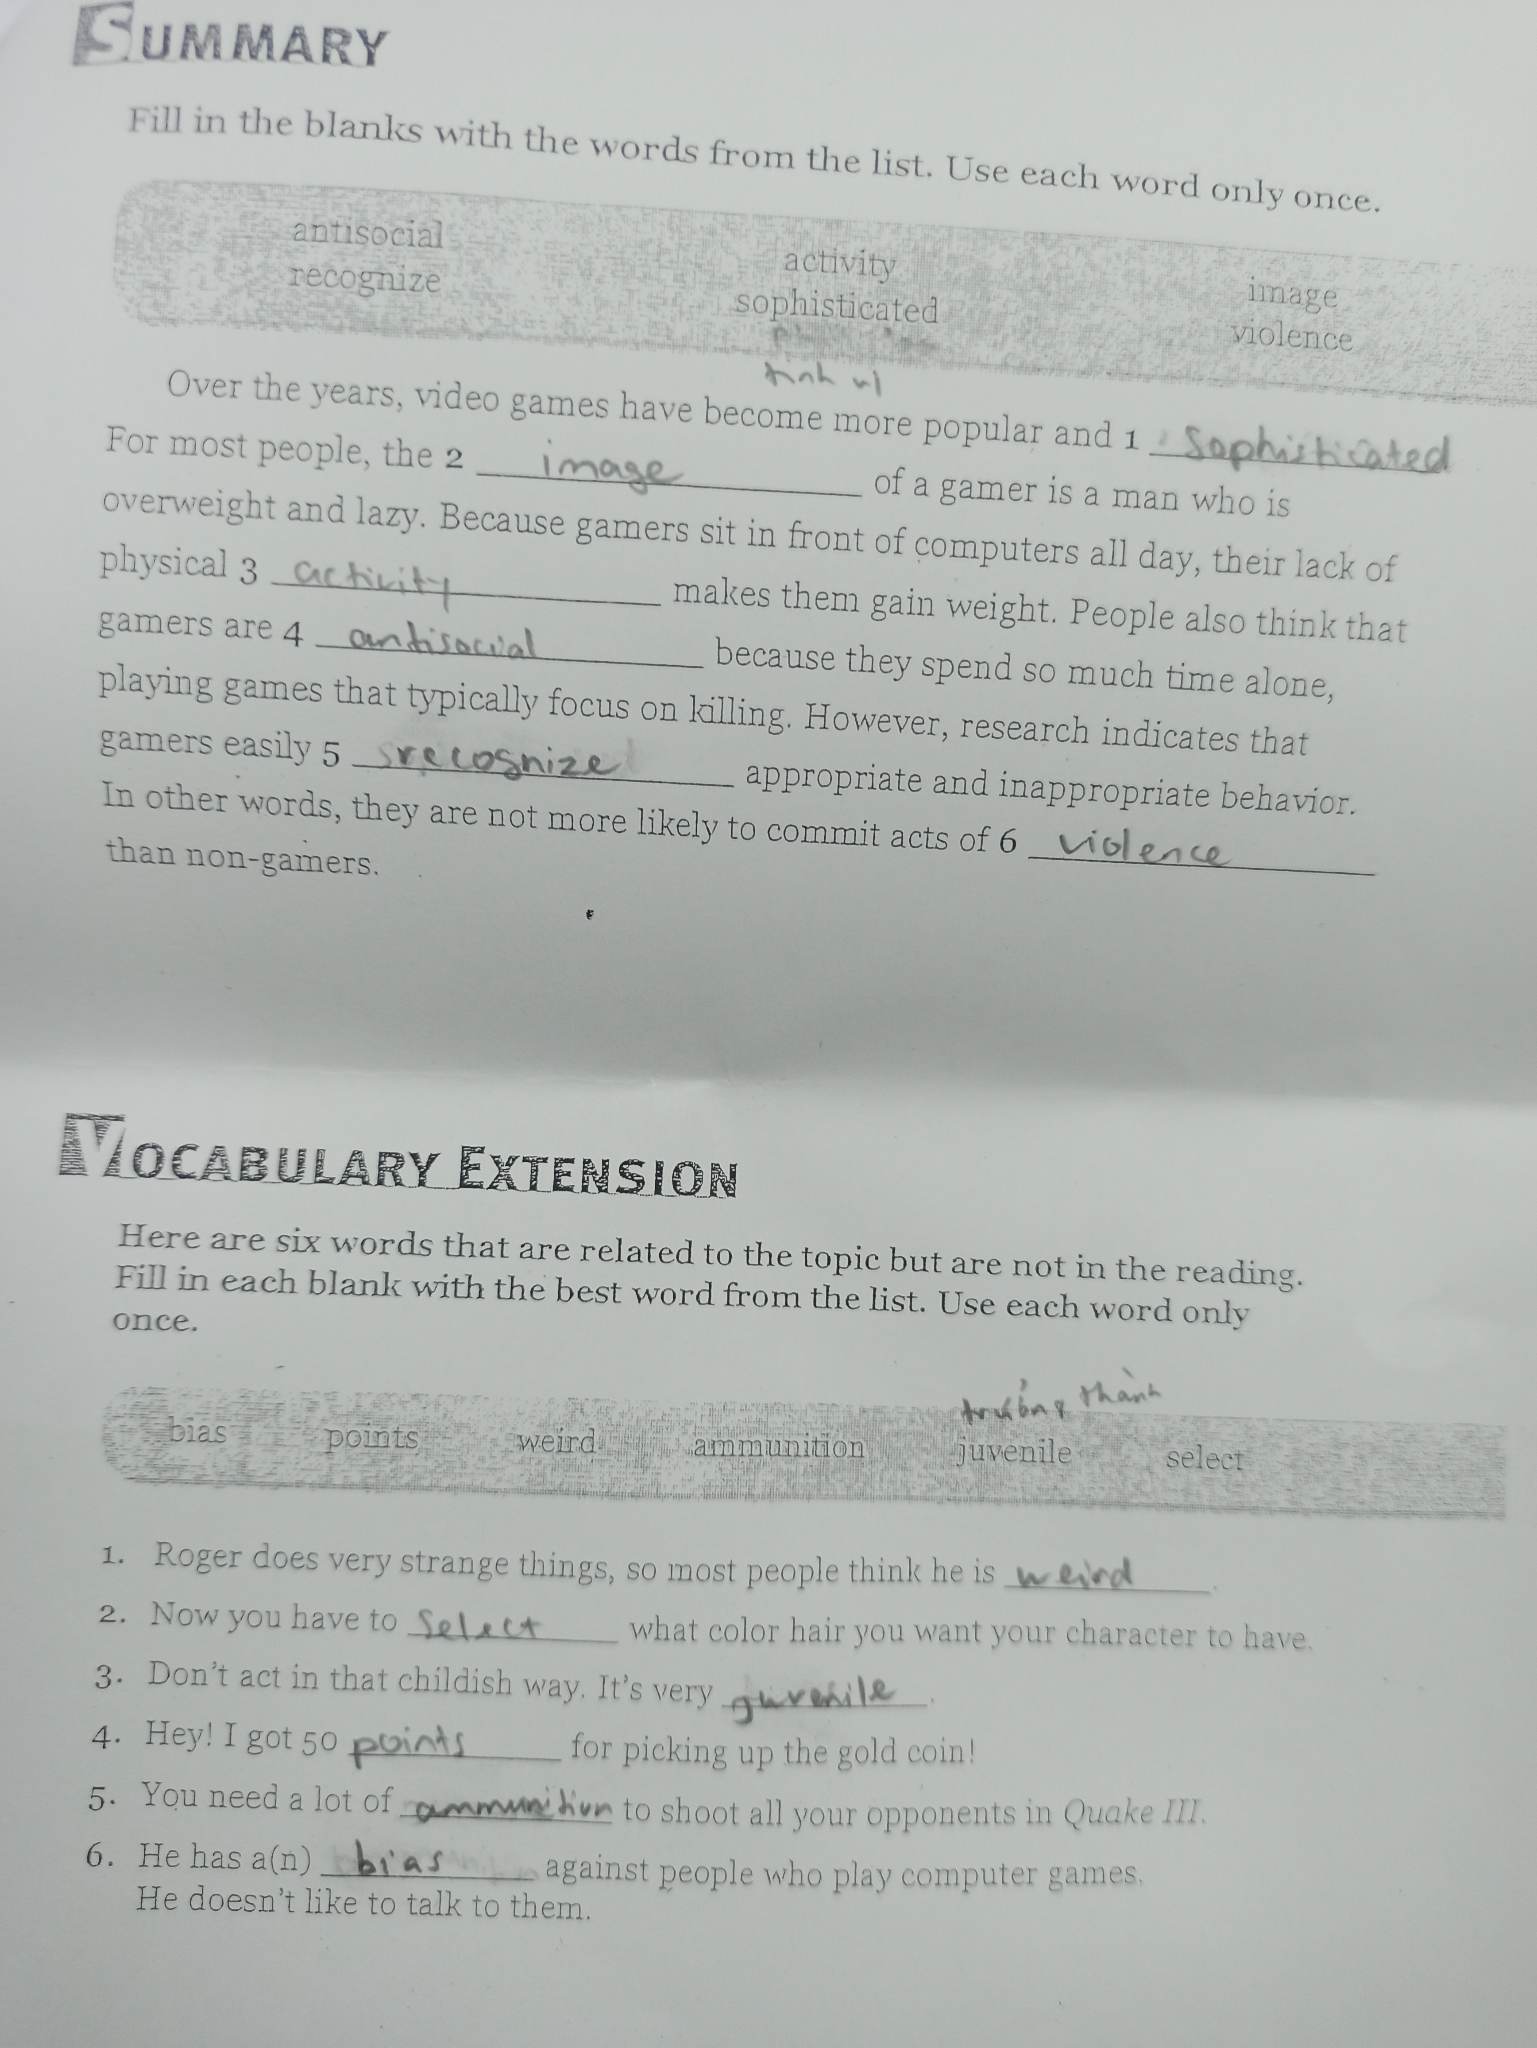 SUMMARY
Fill in the blanks with the words from the list. Use each word only once.
antisocial activity image
recognize sophisticated violence
tinh vi
Over the years, video games have become more popular and 1 Sophisticated
For most people, the 2 image of a gamer is a man who is
overweight and lazy. Because gamers sit in front of computers all day, their lack of
physical 3 activity makes them gain weight. People also think that
gamers are 4 antisocial because they spend so much time alone,
playing games that typically focus on killing. However, research indicates that
gamers easily 5 recognize appropriate and inappropriate behavior.
In other words, they are not more likely to commit acts of 6 violence
than non-gamers.
VOCABULARY EXTENSION
Here are six words that are related to the topic but are not in the reading.
Fill in each blank with the best word from the list. Use each word only
once.
trưởng thành
bias points weird ammunition juvenile select
1. Roger does very strange things, so most people think he is weird.
2. Now you have to Select what color hair you want your character to have.
3. Don't act in that childish way. It's very juvenile.
4. Hey! I got 50 points for picking up the gold coin!
5. You need a lot of ammunition to shoot all your opponents in Quake III.
6. He has a(n) bias against people who play computer games.
He doesn't like to talk to them.